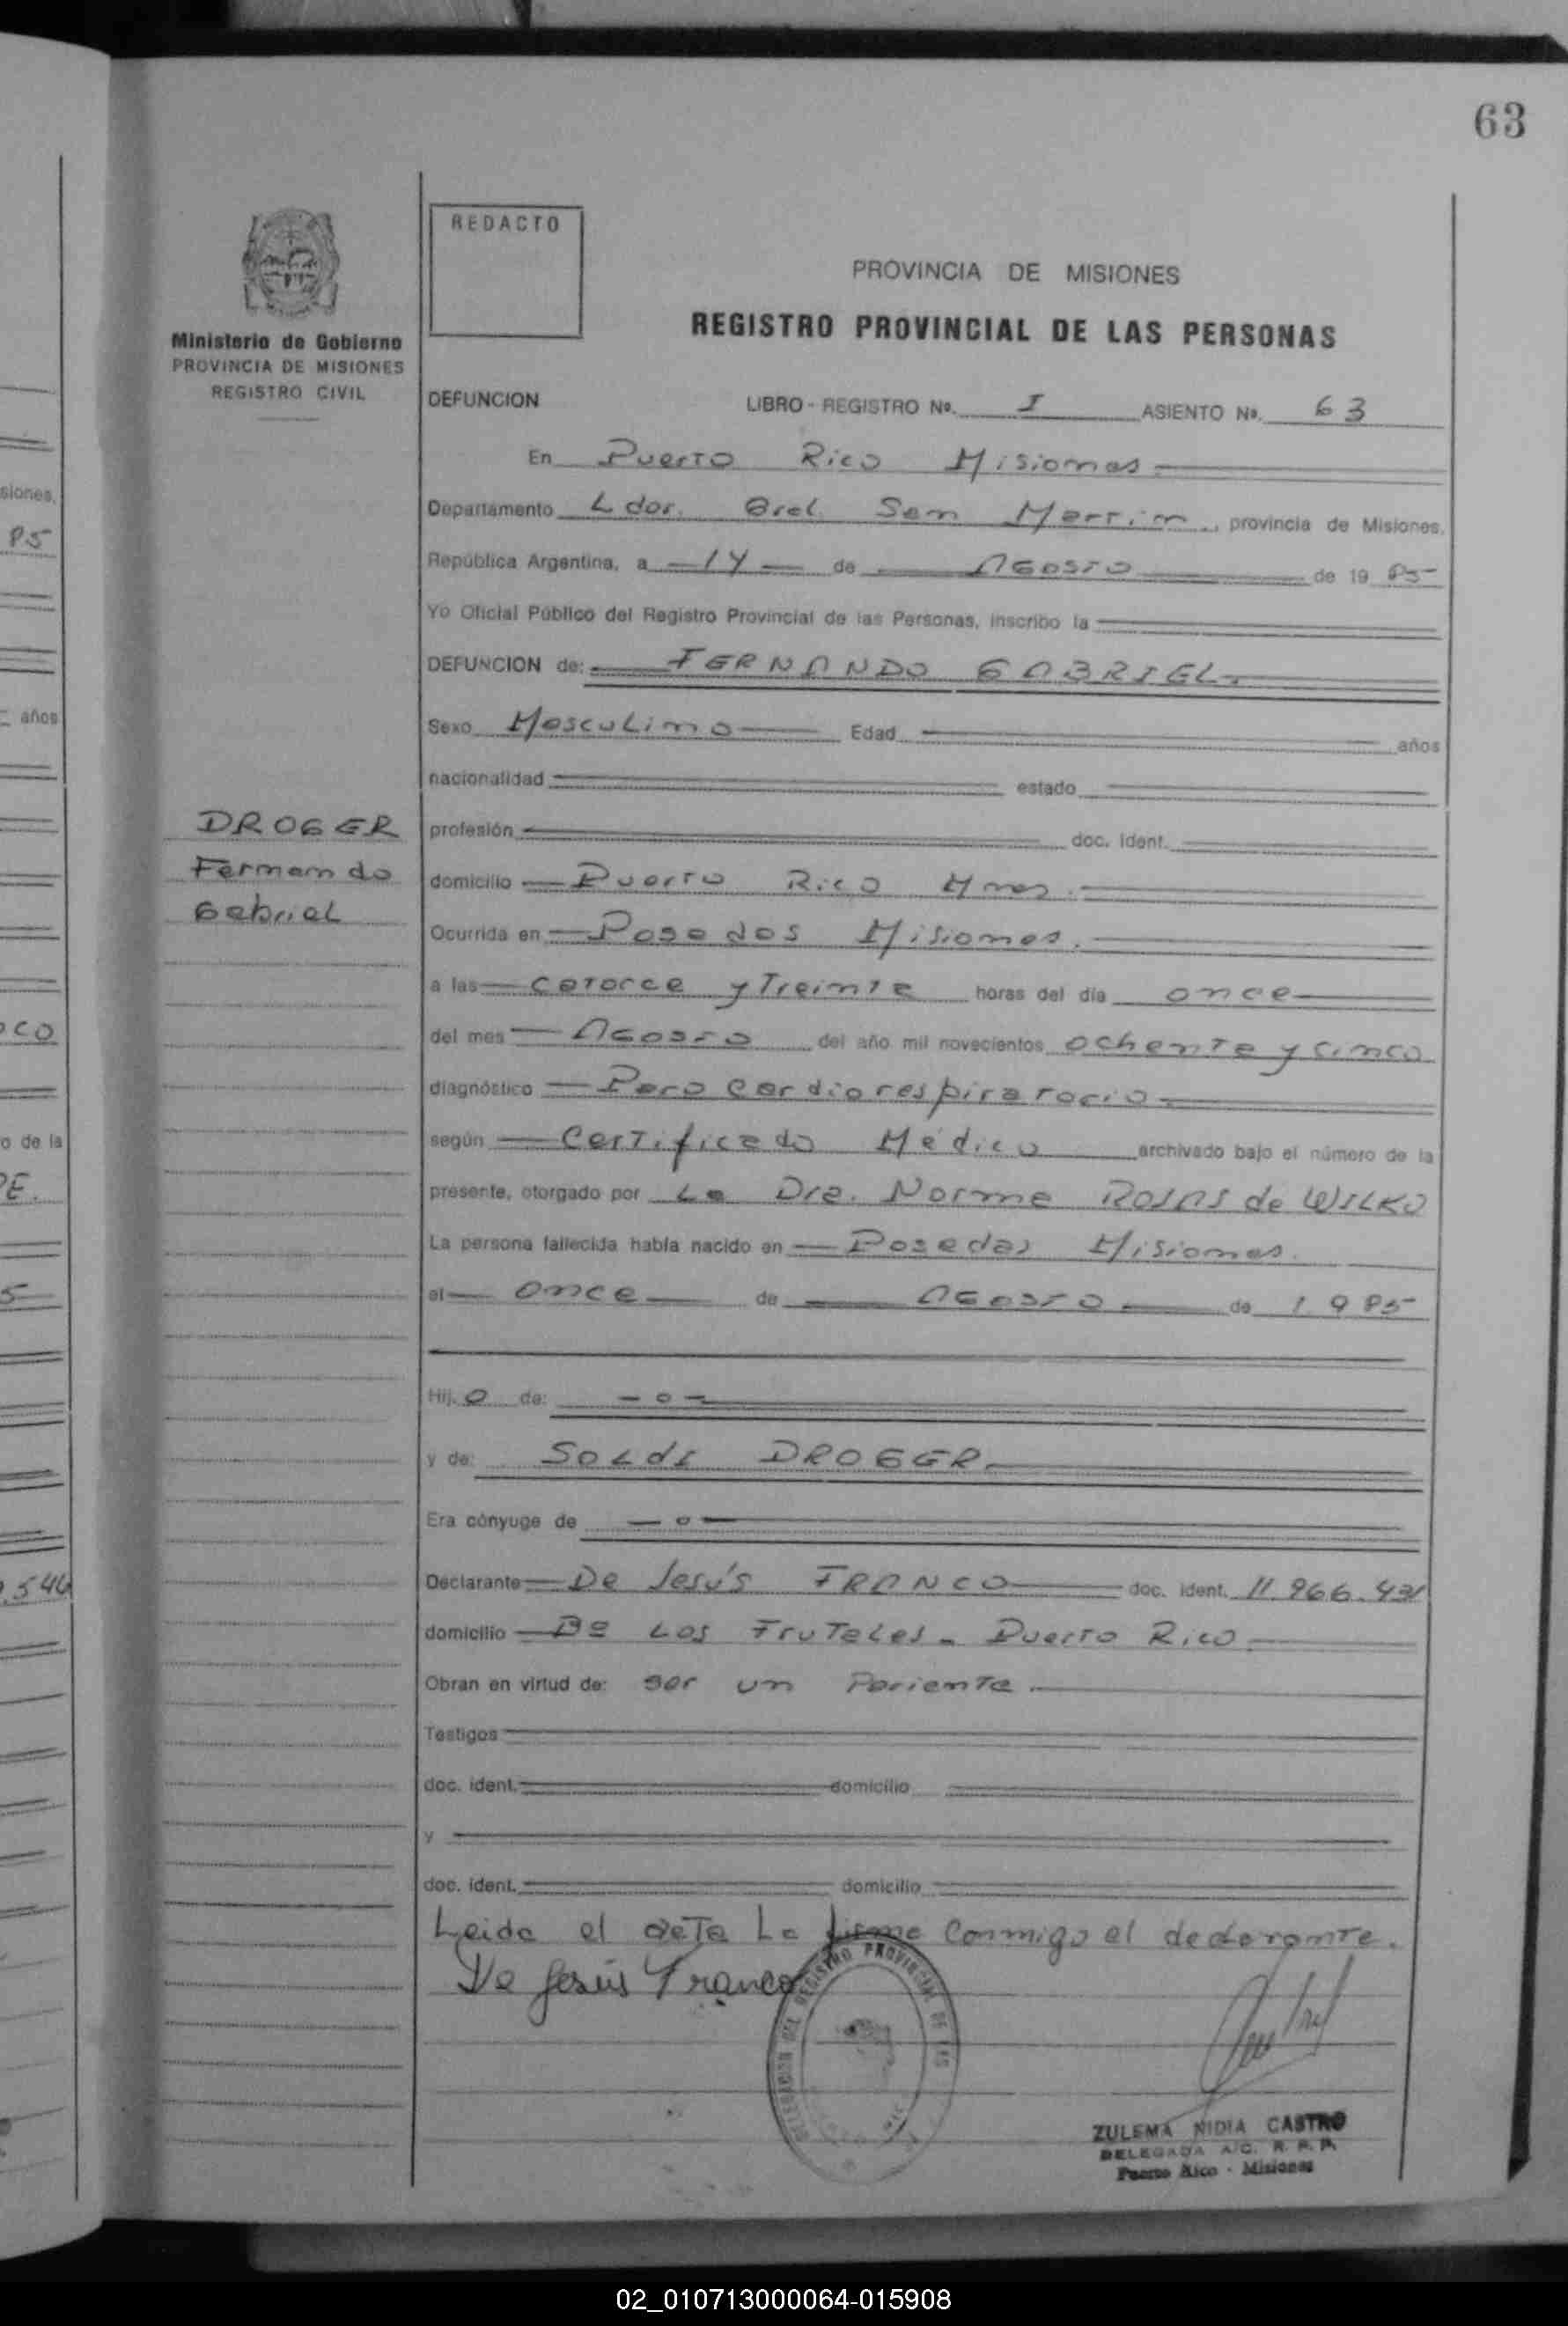 63
REDACTO
PROVINCIA DE MISIONES
REGISTRO PROVINCIAL DE LAS PERSONAS
Ministerio de Gobierno
PROVINCIA DE MISIONES
REGISTRO CIVIL
DEFUNCION LIBRO - REGISTRO Nº. I ASIENTO Nº. 63
En Puerto Rico Misiones
Departamento Ldor. Gral. San Martin, provincia de Misiones.
República Argentina, a 14 de AGOSTO de 19 85
Yo Oficial Público del Registro Provincial de las Personas, inscribo la
DEFUNCION de: FERNANDO GABRIEL.
Sexo Masculino Edad años
nacionalidad estado
DROGER
Fernando
Gabriel
profesión doc. ident.
domicilio Puerto Rico Mnes.
Ocurrida en Posadas Misiones.
a las catorce y Treinta horas del día once
del mes AGOSTO del año mil novecientos ochenta y cinco
diagnóstico Paro cardiorespiratorio
según Certificado Médico archivado bajo el número de la
presente, otorgado por La Dra. Norma ROJAS de WILKO
La persona fallecida había nacido en Posadas Misiones.
el once de AGOSTO de 1985
Hij. o de: - o -
y de: SOLdI DROGER.
Era cónyuge de - o -
Declarante De Jesús FRANCO doc. ident.
domicilio Bº Los FruTales - Puerto Rico
Obran en virtud de: ser un Pariente.
Testigos
doc. ident. domicilio
y
doc. ident. domicilio
Leida el acta La firma conmigo el declarante.
De Jesús Franco
DELEGACION DEL REGISTRO PROVINCIAL DE LAS
ZULEMA NIDIA CASTRO
DELEGADA A/C. R. P. P.
Puerto Rico - Misiones
siones.
85
años
o de la
PE.
5
02_010713000064-015908